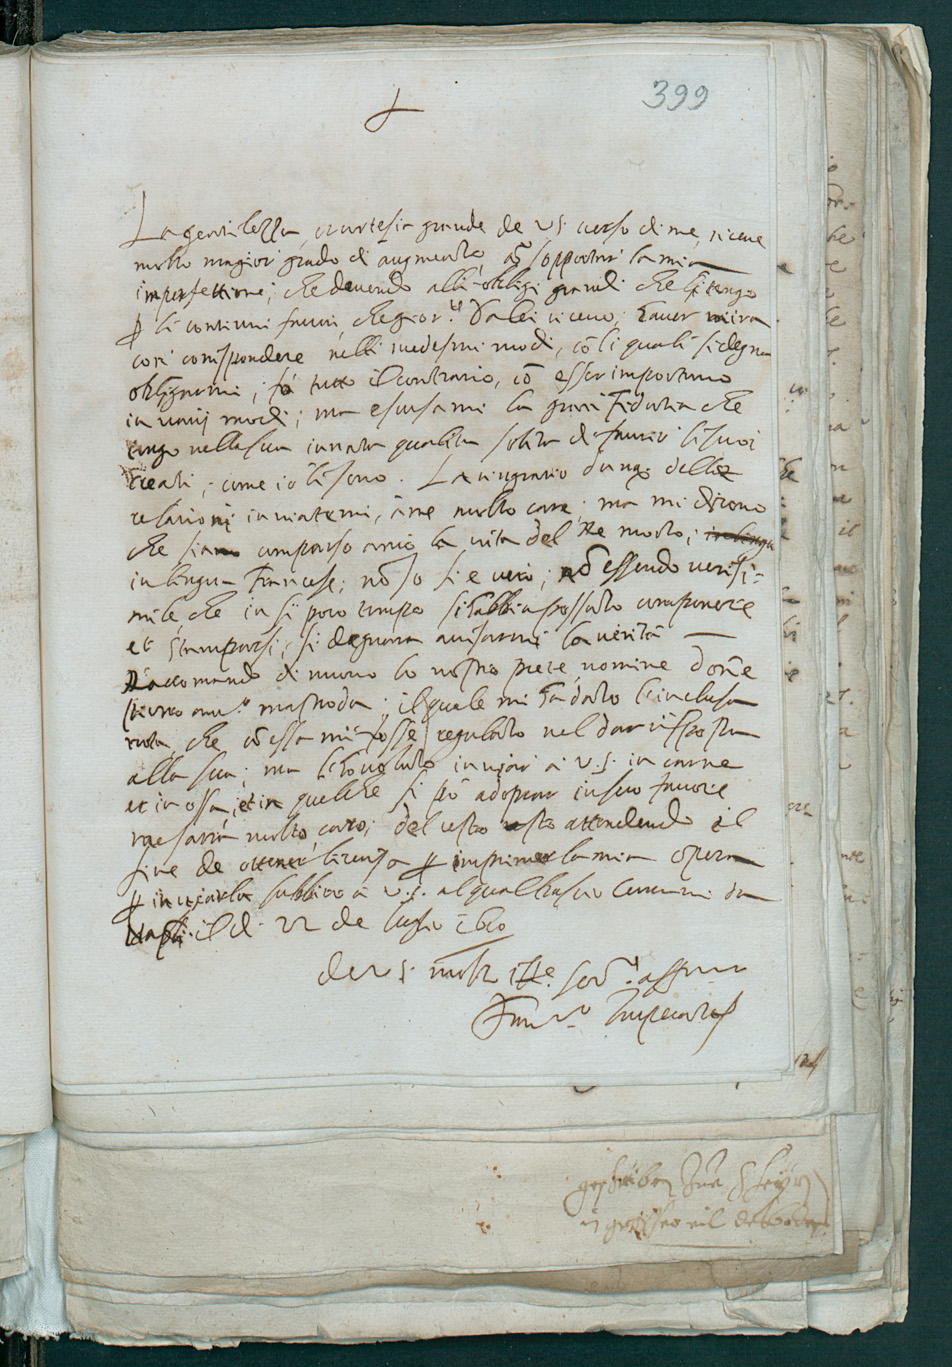 399
La gentilezza, et cortesia grande de V.S. verso di me, riceve
molto magior grado di augmento, co sopportar la mia
imperfettione; che devendo alli oblighi grandi che li tengo
p li continui favori, che gior.te da lei ricevo; haver mira
cosi corispondere nelli medesmi modi, cõ li quali si degna
obligarmi; fo tutto il contrario, cõ esser importuno
in varij modi; ma escusami la gran fiducia che
tengo nella sua innata qualita solita di favorir li suoi
reali; come io li sono. La ringratio dunqe delle
relationi inviatemi, à me molto care; ma mi dicono
che sia comparso anco la vita del Re morto;
in lingua Francese; nõ so si e vero; nõ essendo verisi-
mile, che in sì poco tempo si habbia possuto componere
et stamparsi; si degnara avisarmi la verità
Raccomando di nuovo lo nostro prete, nomine Don
Pietro mastroda; il quale mi ha dato l'inclusa
nota, che cõ essa mi fosse regulato nel dar risposta
alla sua; ma li ho voluto inviar à V.S. in carne
et in ossa, et in quel che si può adoprar in suo favore
me saria molto caro; del resto resto attendendo il
fine de ottener licenza p imprimer la mia opera
p inviarla subbito à V.S. al qual bascio le mani da
Napoli il dì 22 de luglio 1610
de V.S. molto Ill.e ser.r aff.mo
Fran.co Imperato